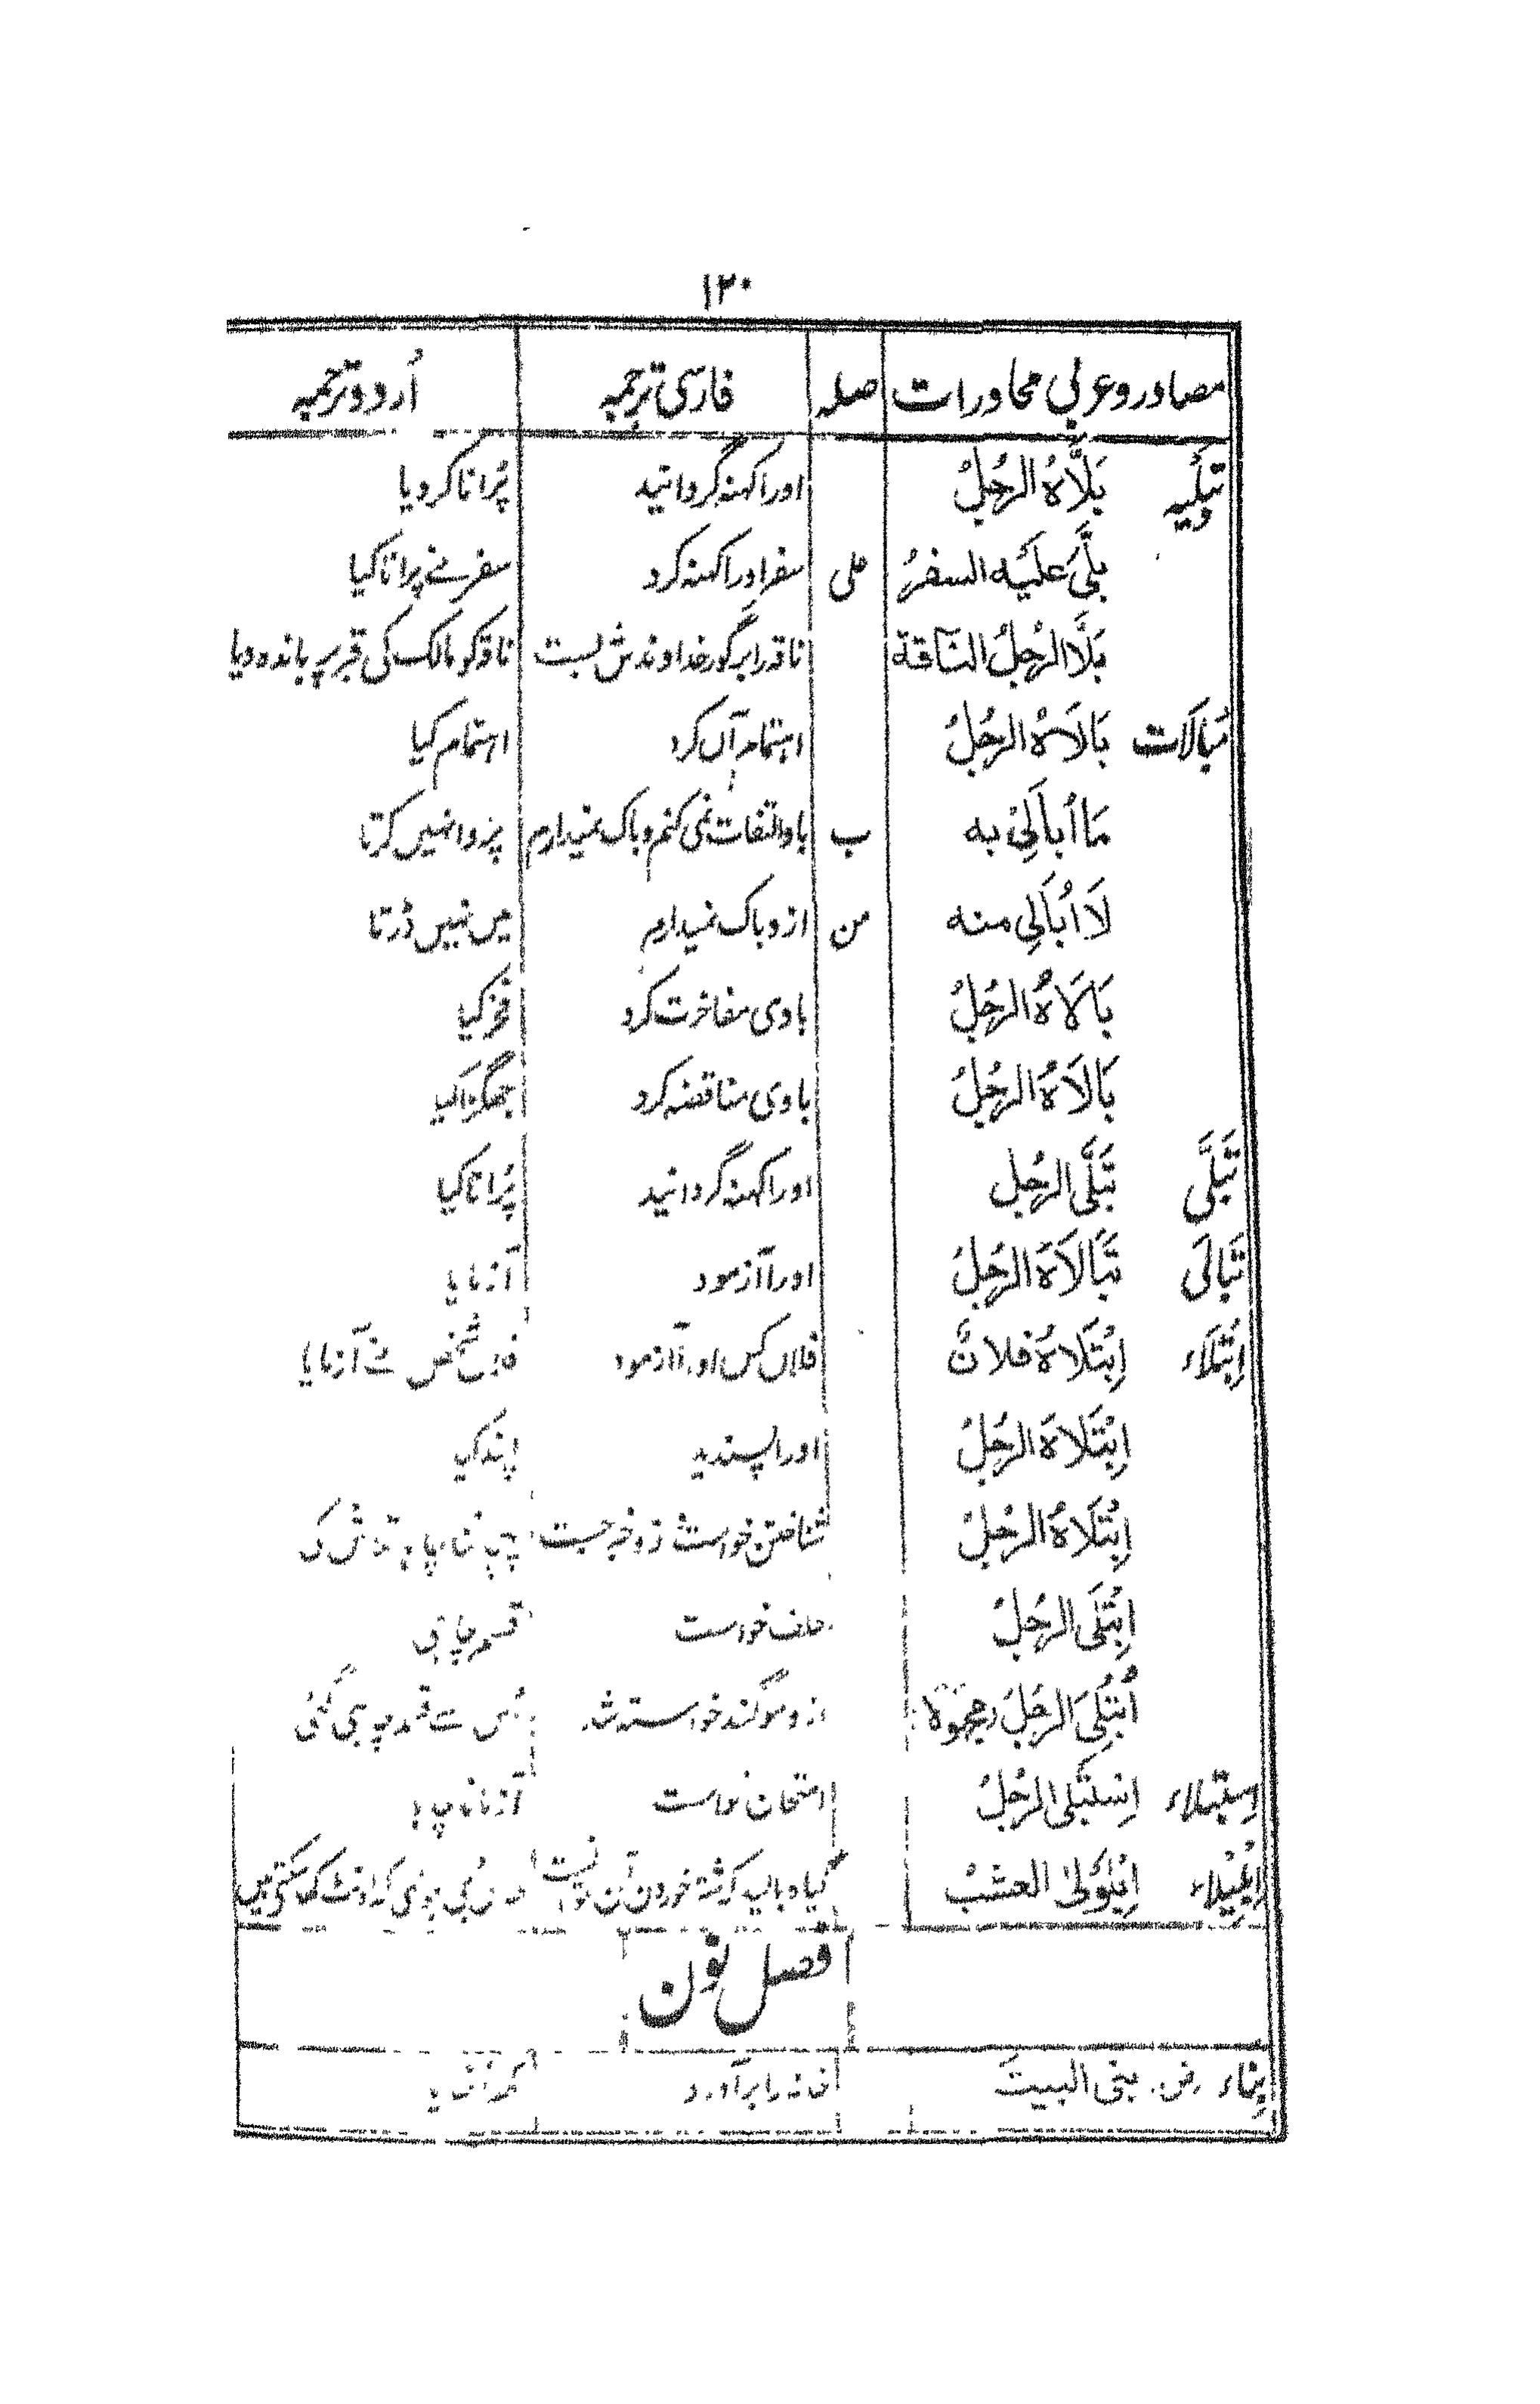 ۱۲۰
مصادر و عربی محاورات صلہ فارسی ترجمہ اُردو ترجمہ
تَبْلِیَہ بَلَّاہُ الرَّجُلُ اورا کہنہ گردانید پُرانا کردیا
بَلَّیٰ عَلَیْہ السفرُ علی سفر اورا کہنہ کرد سفر نے پرانا کیا
بَلَّا الرَّجُلُ النَّاقة ناقہ را بر گور خداوندش بست ناقہ کو مالک کی قبر پر باندہ دیا
مُبَالَات بَالَاہُ الرَّجُلُ اہتمام آں کرد اہتمام کیا
مَا اُبَالِیْ بہ ب باو التفات نمی کنم و باک نمیدارم پروا نہیں کرتا
لَا اُبَالِی منہ من ازو باک نمیدارم میں نہیں ڈرتا
بَالَاہُ الرَّجُلُ باوی مفاخرت کرد فخر کیا
بَالَاہُ الرَّجُلُ باوی مناقضہ کرد جھگڑا کیا
تَبَلَّی تَبَلَّی الرَّجُل اورا کہنہ گردانید پُرانا کیا
تَبَالَی تَبَالَاہَ الرَّجُلُ اورا آزمود آزمایا
اِبْتِلَاء اِبْتَلَاہُ فلانٌ فلاں کس اورا آزمود فلاں شخص نے آزمایا
اِبْتَلَاہَ الرَّجُلُ اورا پسندید پسند کیا
اِبْتَلَاہُ الرَّجُلُ شناختن خواست و زو خبر جست
اِبْتَلَی الرَّجُلُ حلف خواست قسم چاہی
اُبْتُلِیَ الرَّجُلُ (مجہولا) ازو سوگند خواستہ شد اُس سے قسم چاہی گئی
اِسْتِبْلاء اِسْتَبْلَی الرَّجُلُ امتحان خواست آزمانا چاہا
اِبْلِیْلاء اِبْلَوْلیٰ العشبُ
فصل نون
بِناء ض بنی البیتَ خانہ را برآورد گھر اٹھایا